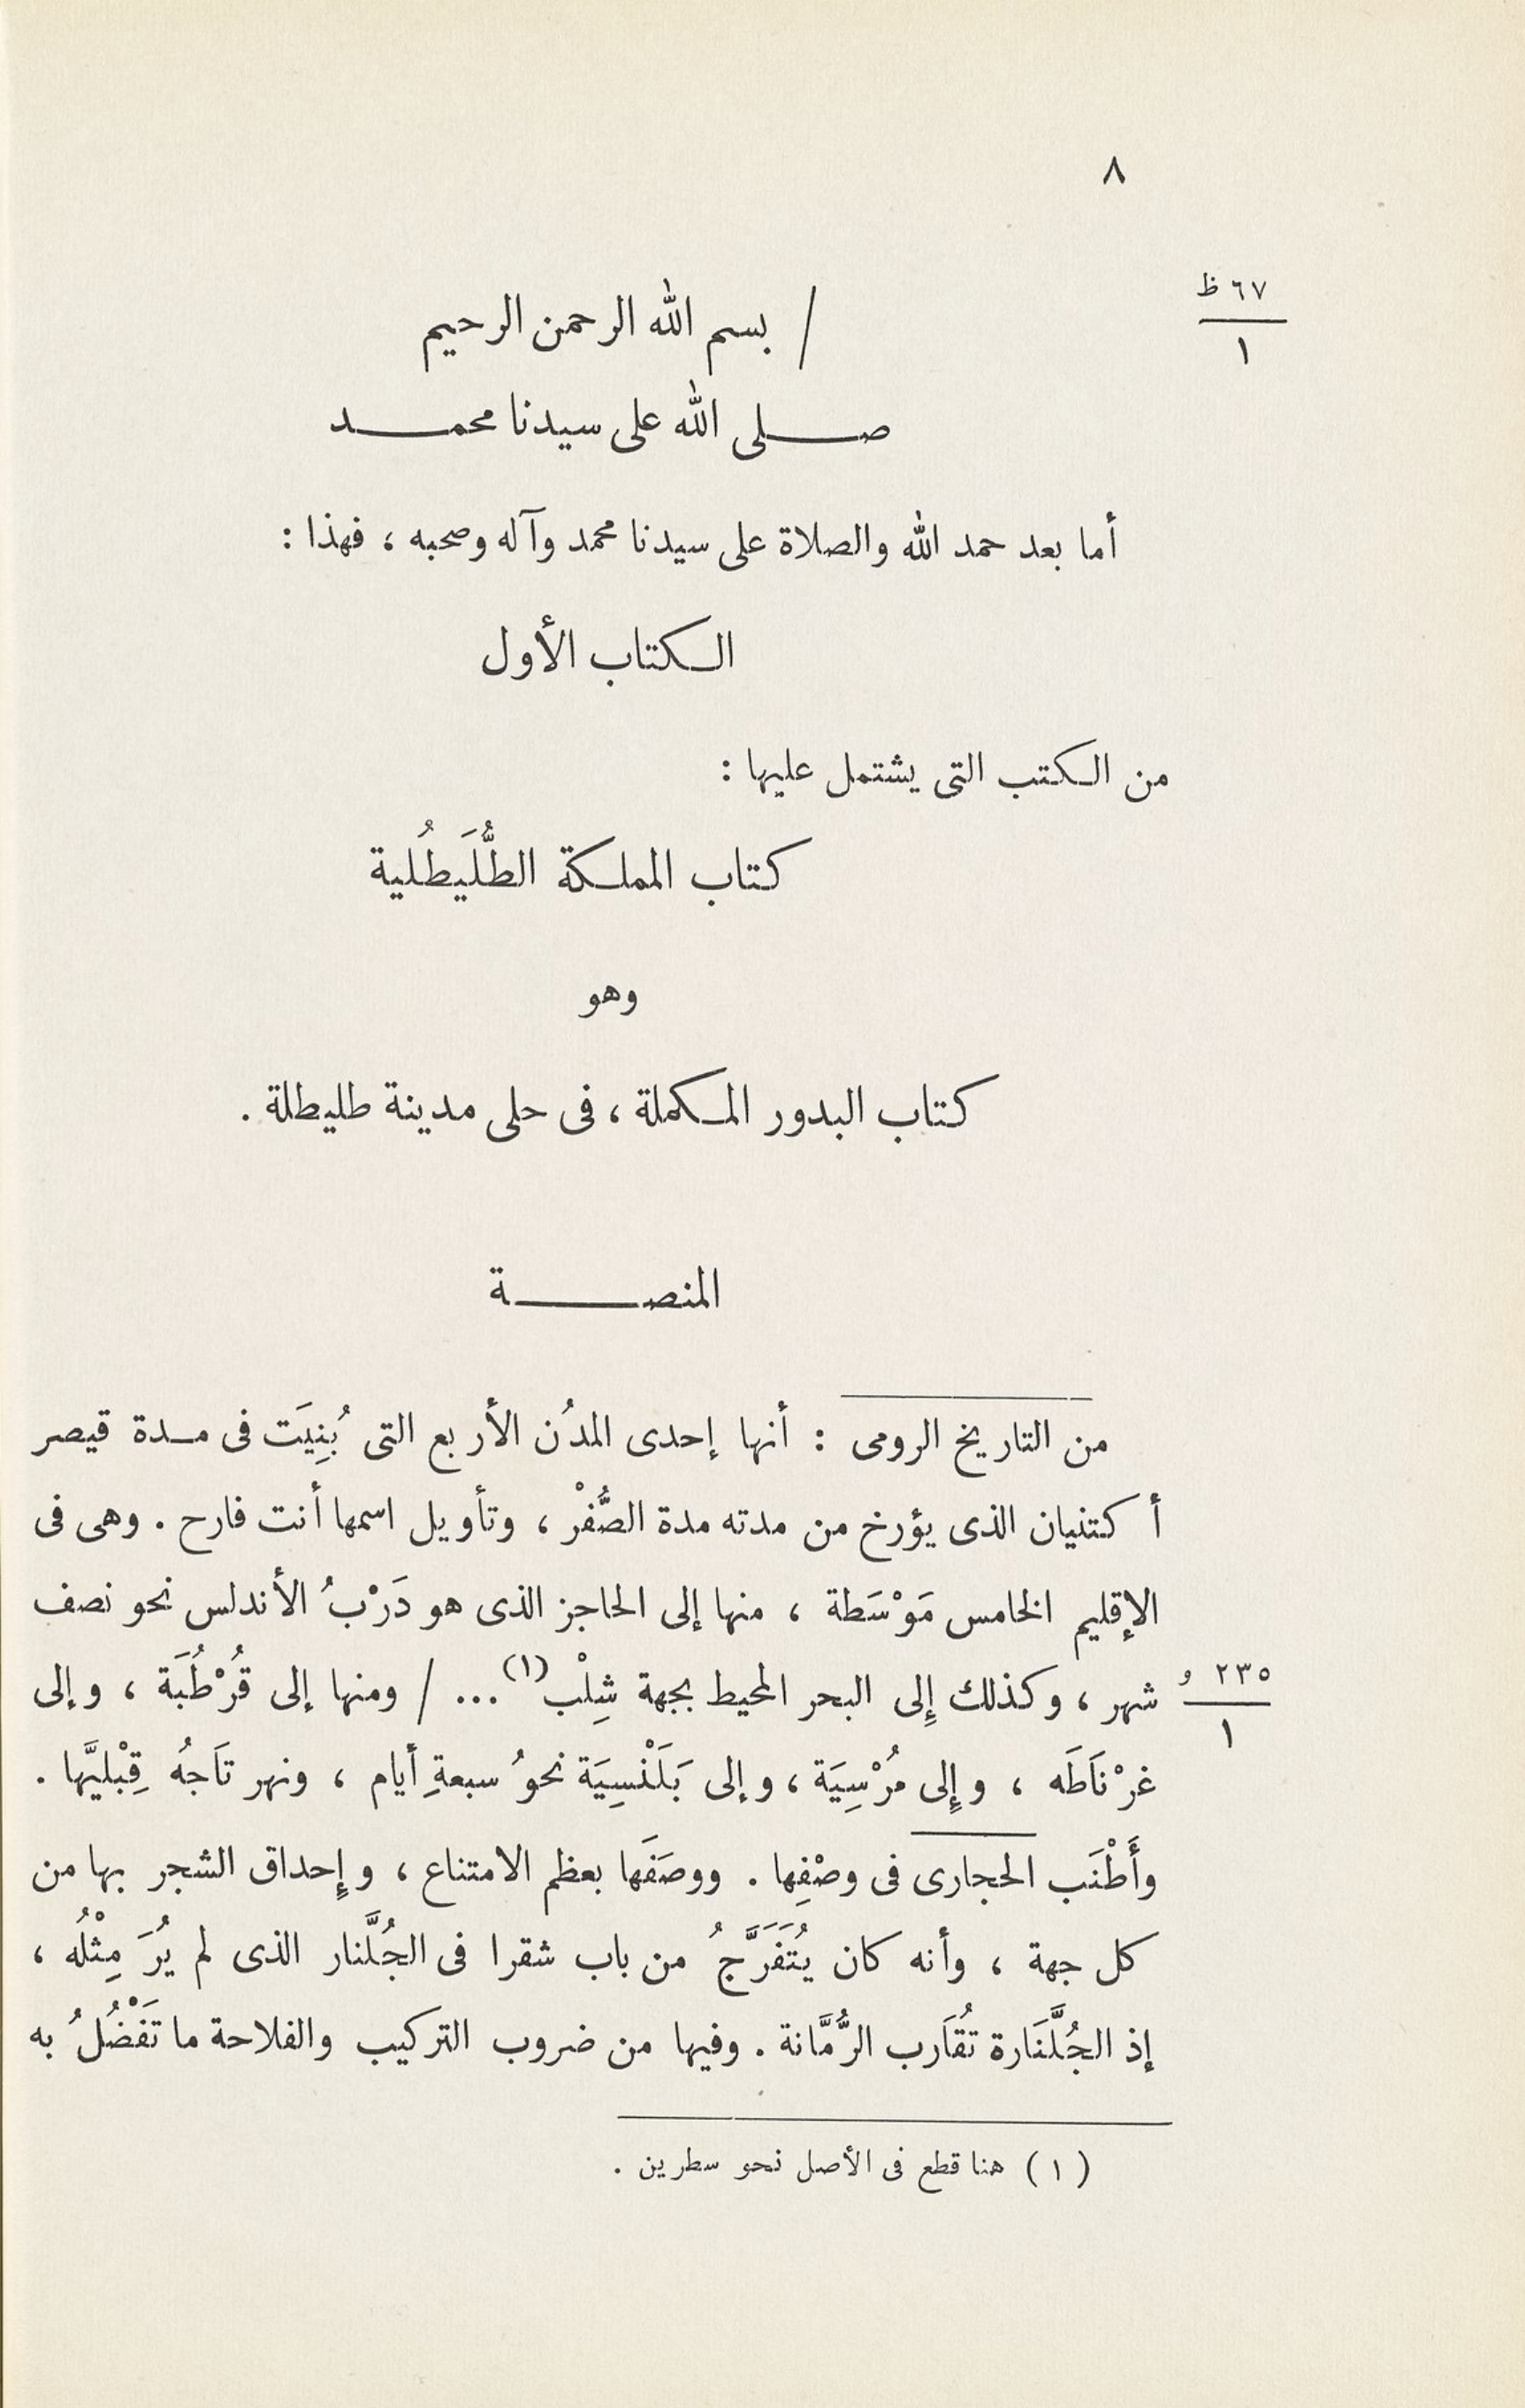 ٨
٦٧ ظ
١
/ بسم الله الرحمن الرحيم
صلى الله على سيدنا محمد
أما بعد حمد الله والصلاة على سيدنا محمد وآله وصحبه ، فهذا :
الكتاب الأول
من الكتب التى يشتمل عليها :
كتاب المملكة الطُّلَيطُلية
وهو
كتاب البدور المكملة ، فى حلى مدينة طليطلة .
المنصة
من التاريخ الرومى : أنها إحدى المدُن الأربع التى بُنِيَت فى مدة قيصر
أكتنيان الذى يؤرخ من مدته مدة الصُّفْر ، وتأويل اسمها أنت فارح . وهى فى
الإقليم الخامس مَوْسَطة ، منها إلى الحاجز الذى هو دَرْبُ الأندلس نحو نصف
شهر ، وكذلك إِلى البحر المحيط بجهة شِلْب (١) ... / ومنها إلى قُرْطُبَة ، وإلى
٢٣٥ و
١
غرْنَاطَه ، وإِلى مُرْسِيَة ، وإلى بَلَنْسِيَة نحوُ سبعةِ أيام ، ونهر تَاجُه قِبْليَّها .
وأَطْنَب الحجارى فى وصْفِها . ووصَفَها بعظم الامتناع ، وإِحداق الشجر بها من
كل جهة ، وأنه كان يُتَفَرَّجُ من باب شقرا فى الجُلَّنار الذى لم يُرَ مِثْلُه ،
إذ الجُلَّنَارة تُقَارب الرُّمَّانة . وفيها من ضروب التركيب والفلاحة ما تَفْضُلُ به
(١) هنا قطع فى الأصل نحو سطرين .